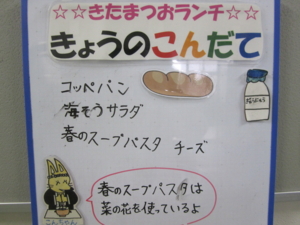 ☆☆きたまつおランチ☆☆
きょうのこんだて
コッペパン
海そうサラダ
春のスープパスタ チーズ
春のスープパスタは
菜の花を使っているよ
こんちゃん